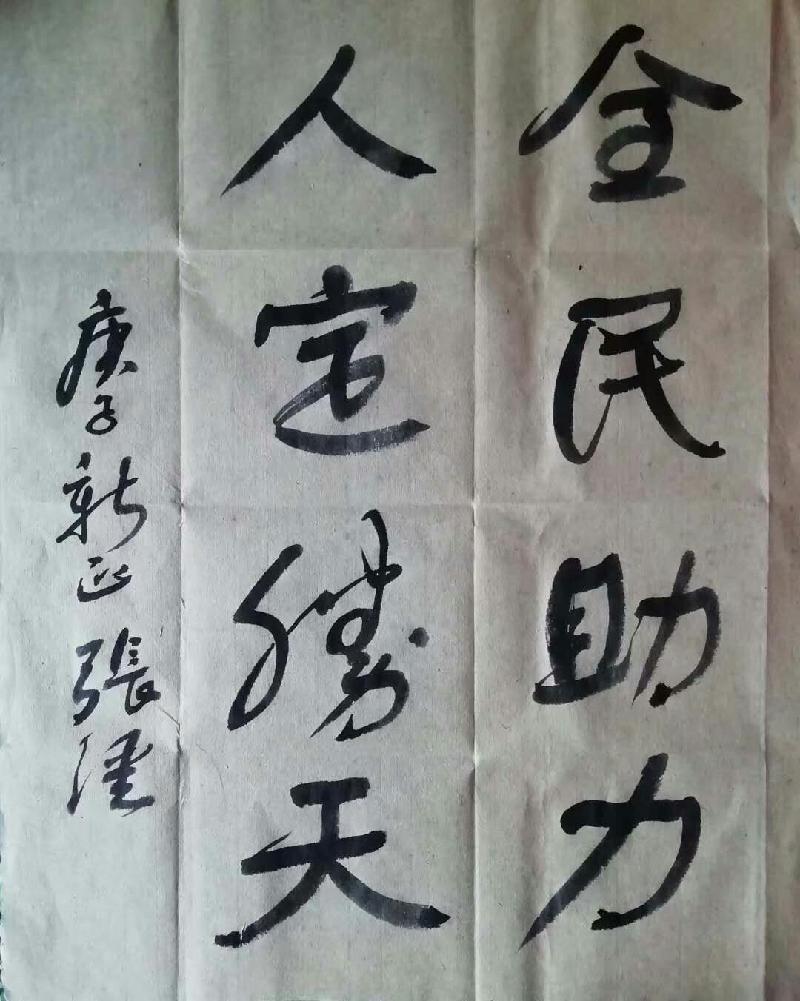 全民助力
人定勝天
庚子新正 張